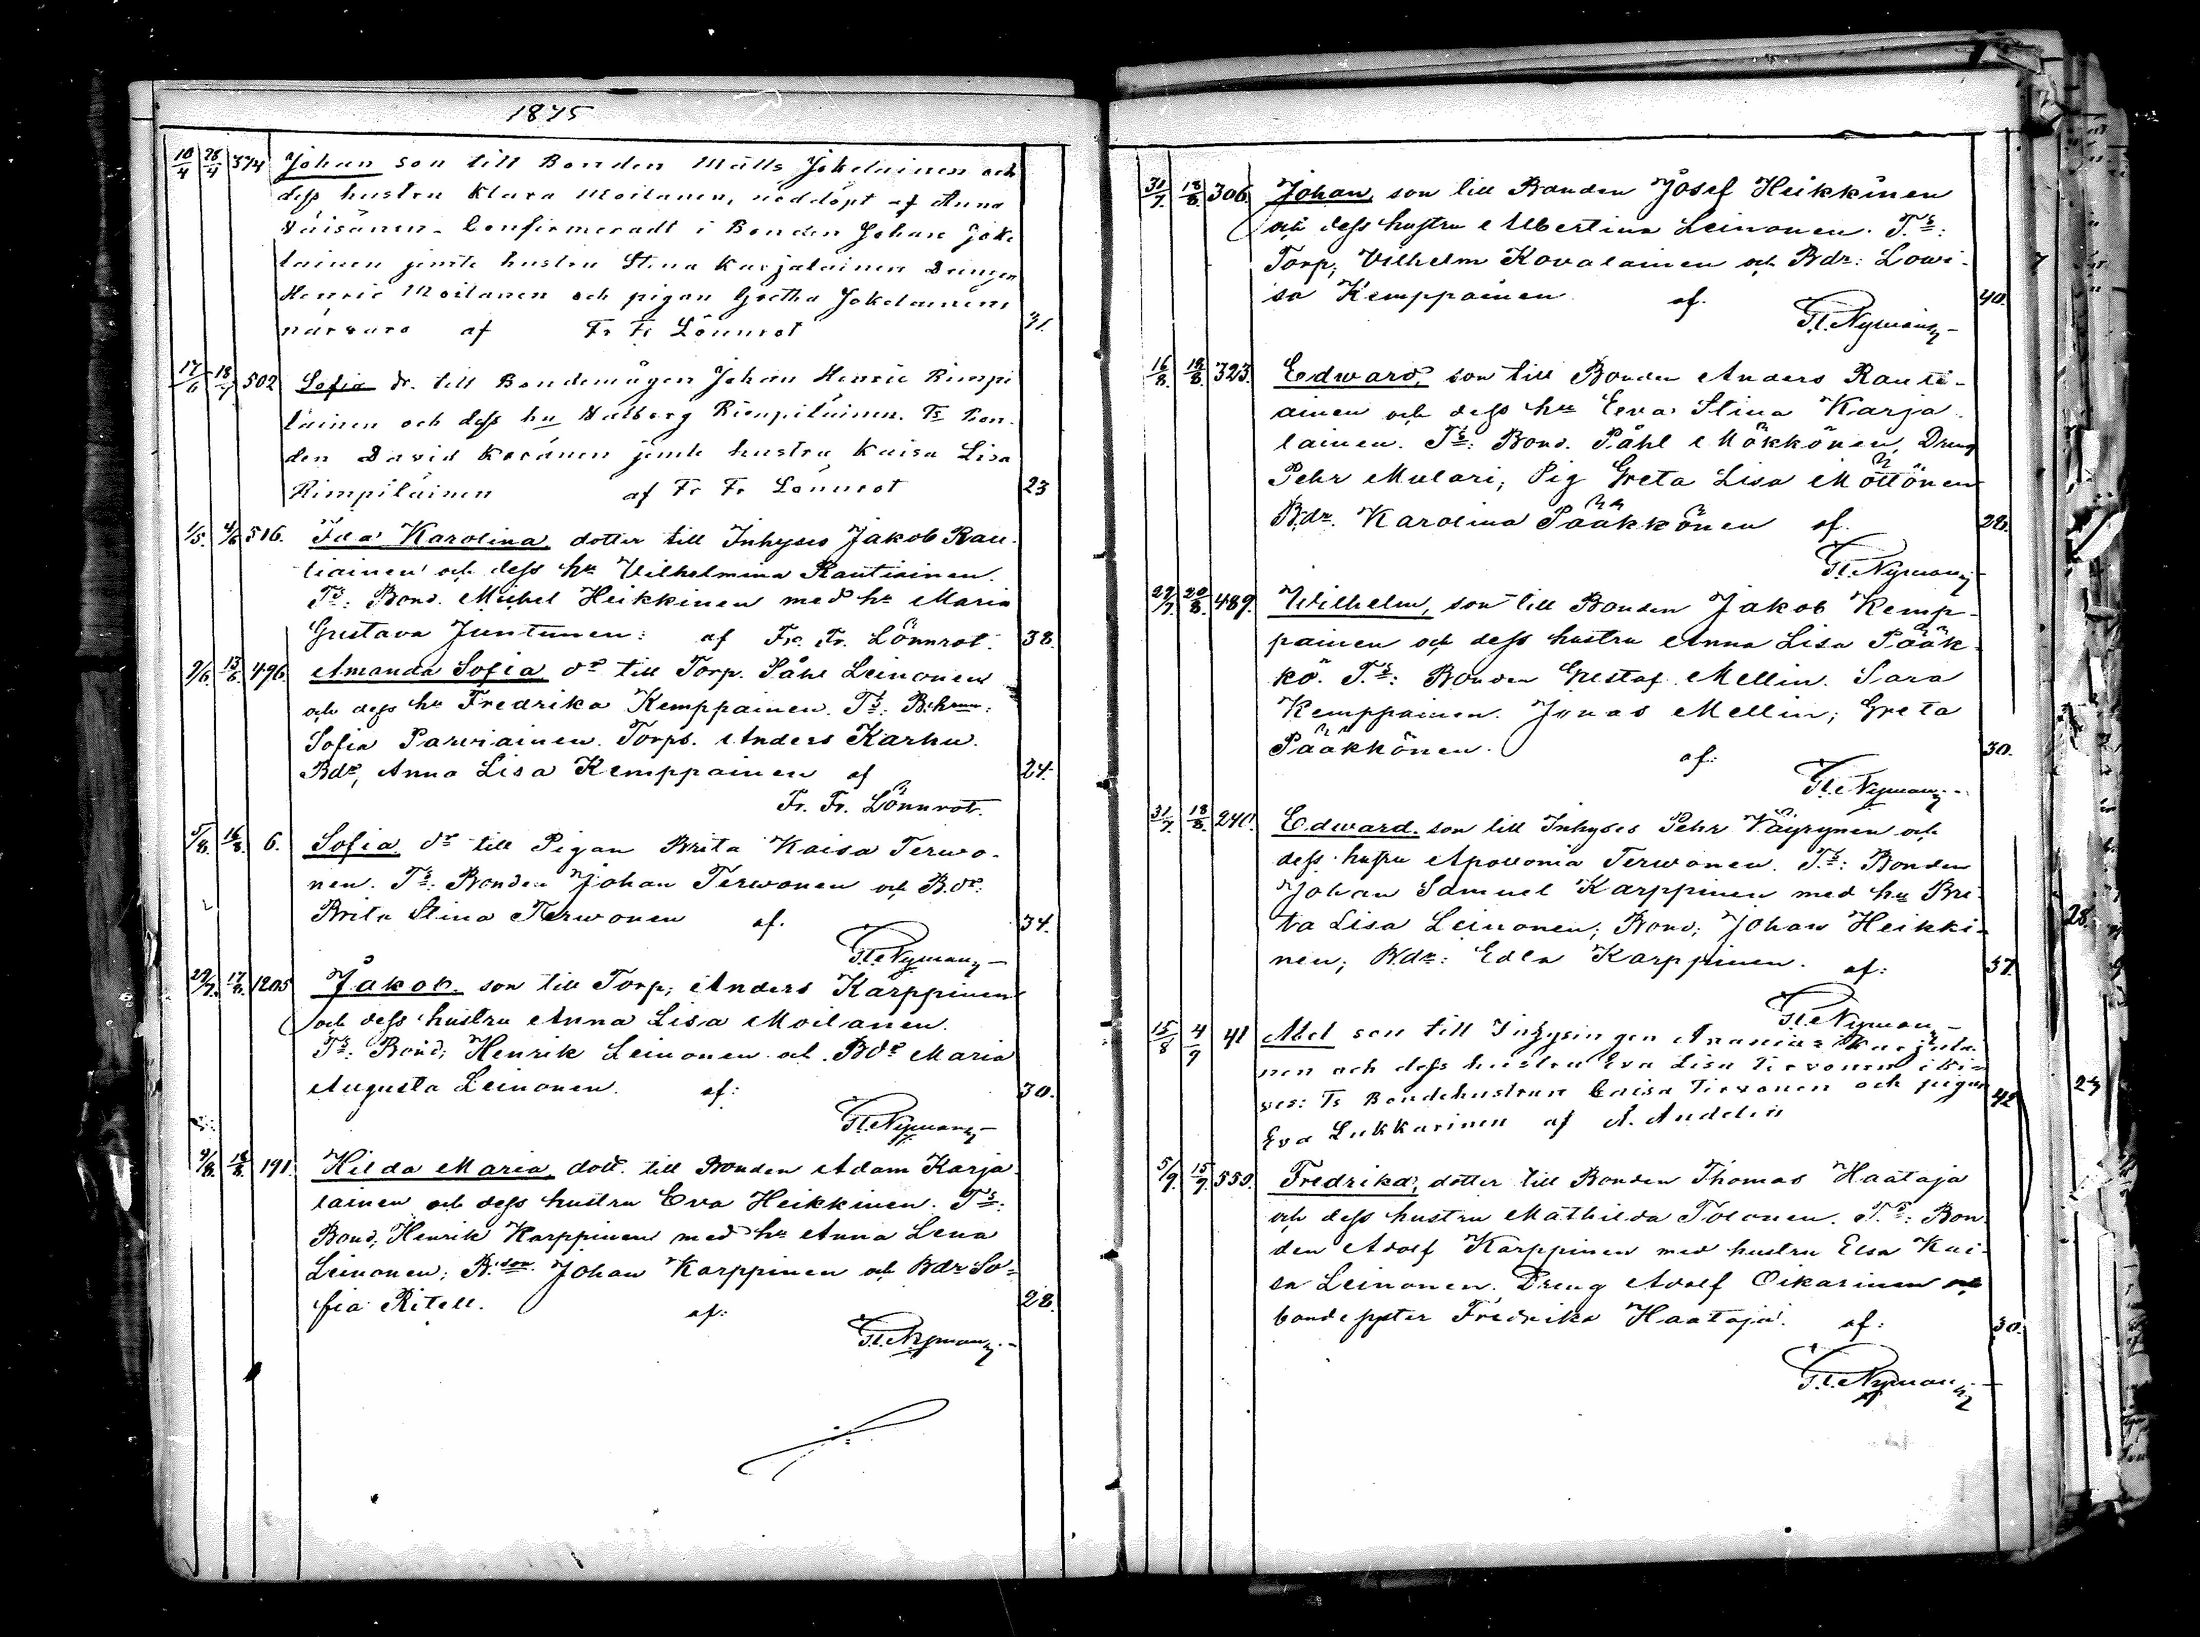 1875
10/4 28/4 374 Johan son till Bonden Matts Jokelainen och
dess hustru Klara Moilanen, nöddöpt af Anna
Väisänen. Confirmeradt i Bonden Johan Joke
lainen jemte hustru Stina Karjalainen Drängen
Henric Moilanen och pigan Gretha Jokelainens
närvaro af Fr Fr Lönnrot 31.
17/6 18/7 502 Sofia dr. till Bondemågen Johan Henric Rimpi
läinen och dess hu Walborg Rimpiläinen. Ts Bon-
den David Keränen jemte hustru Kaisa Lisa
Rimpiläinen af Fr Fr Lönnrot 23
1/5. 4/6 516. Ida Karolina, dotter till Inhyses Jakob Rau-
tiainen och dess hu Vilhelmina Rautiainen.
Ts: Bond. Mickel Heikkinen med hu Maria
Gustava Juntunen: af Fr. Fr. Lönnrot. 38.
9/6. 13/6. 496. Amanda Sofia dr till Torp. Påhl Leinonen
och dess hu Fredrika Kemppainen. Ts:
Sofia Parviainen. Torps. Anders Karhu.
Bdr, Anna Lisa Kemppainen af 24.
Fr. Fr. Lönnrot.
5/8. 16/8. 6. Sofia dr till Pigan Brita Kaisa Terwo-
nen. Ts: Bonden Johan Terwonen och B.dr.
Brita Stina Terwonen af. 34.
Fl. Nyman
29/7. 17/8. 1205 Jakob. son till Torp; Anders Karppinen
och dess hustru Anna Lisa Moilanen.
Ts: Bond; Henrik Leinonen och Bdr Maria
Augusta Leinonen. af: 30.
Fl. Nyman
9/8. 18/8. 191. Hilda Maria, dott. till Bonden Adam Karja-
lainen och dess hustru Eva Heikkinen. Ts:
Bond; Henrik Karppinen med hu Anna Lena
Leinonen; B.son Johan Karppinen och Bdr So-
fia Ritell. af: 28.
Fl. Nyman
31/7. 18/8. 306. Johan, son till Bonden Josef Heikkinen
och dess hustru Albertina Leinonen. Ts:
Torp; Vilhelm Kovalainen och Bdr: Lowi-
sa Kemppainen af. 40.
Fl. Nyman
16/8. 18/8. 323. Edward, son till Bonden Anders Rauti-
ainen och dess hu Eva Stina Karja-
lainen. Ts: Bond. Påhl Mökkönen, Dreng
Pehr Mulari; Pig Greta Lisa Möttönen
B.dr. Karolina Pääkkönen af. 28.
Fl. Nyman
29/7 20/8. 489. Wilhelm, son till Bonden Jakob Kemp-
painen och dess hustru Anna Lisa Pääk-
kö. Ts: Bonden Gustaf Mellin. Sara
Kemppainen. Jonas Mellin; Greta
Pääkkönen. af: 30.
Fl. Nyman
31/7. 18/8. 240. Edward. son till Inhyses Pehr Väyrynen och
dess hustru Apollonia Terwonen. Ts: Bonden
Johan Samuel Karppinen med hu Bri-
ta Lisa Leinonen; Bond; Johan Heikki-
nen; Bdr: Edla Karppinen. af: 37.
Fl. Nyman
28.
15/8 4/9 41 Abel son till Inhysingen Ananias Karjalai-
nen och dess hustru Eva Lisa Tervonen i
ves: Ts Bondehustrun Caisa Tervonen och pigan 42
Eva Lukkarinen af A. Andelin
23
5/9. 15/9. 550. Fredrika, dotter till Bonden Thomas Haataja
och dess hustru Mathilda Tolonen. Ts: Bon-
den Adolf Karppinen med hustru Elsa Kai-
sa Leinonen. Dreng Adolf Oikarinen och
Fredrika Haataja. af: 30.
Fl. Nyman